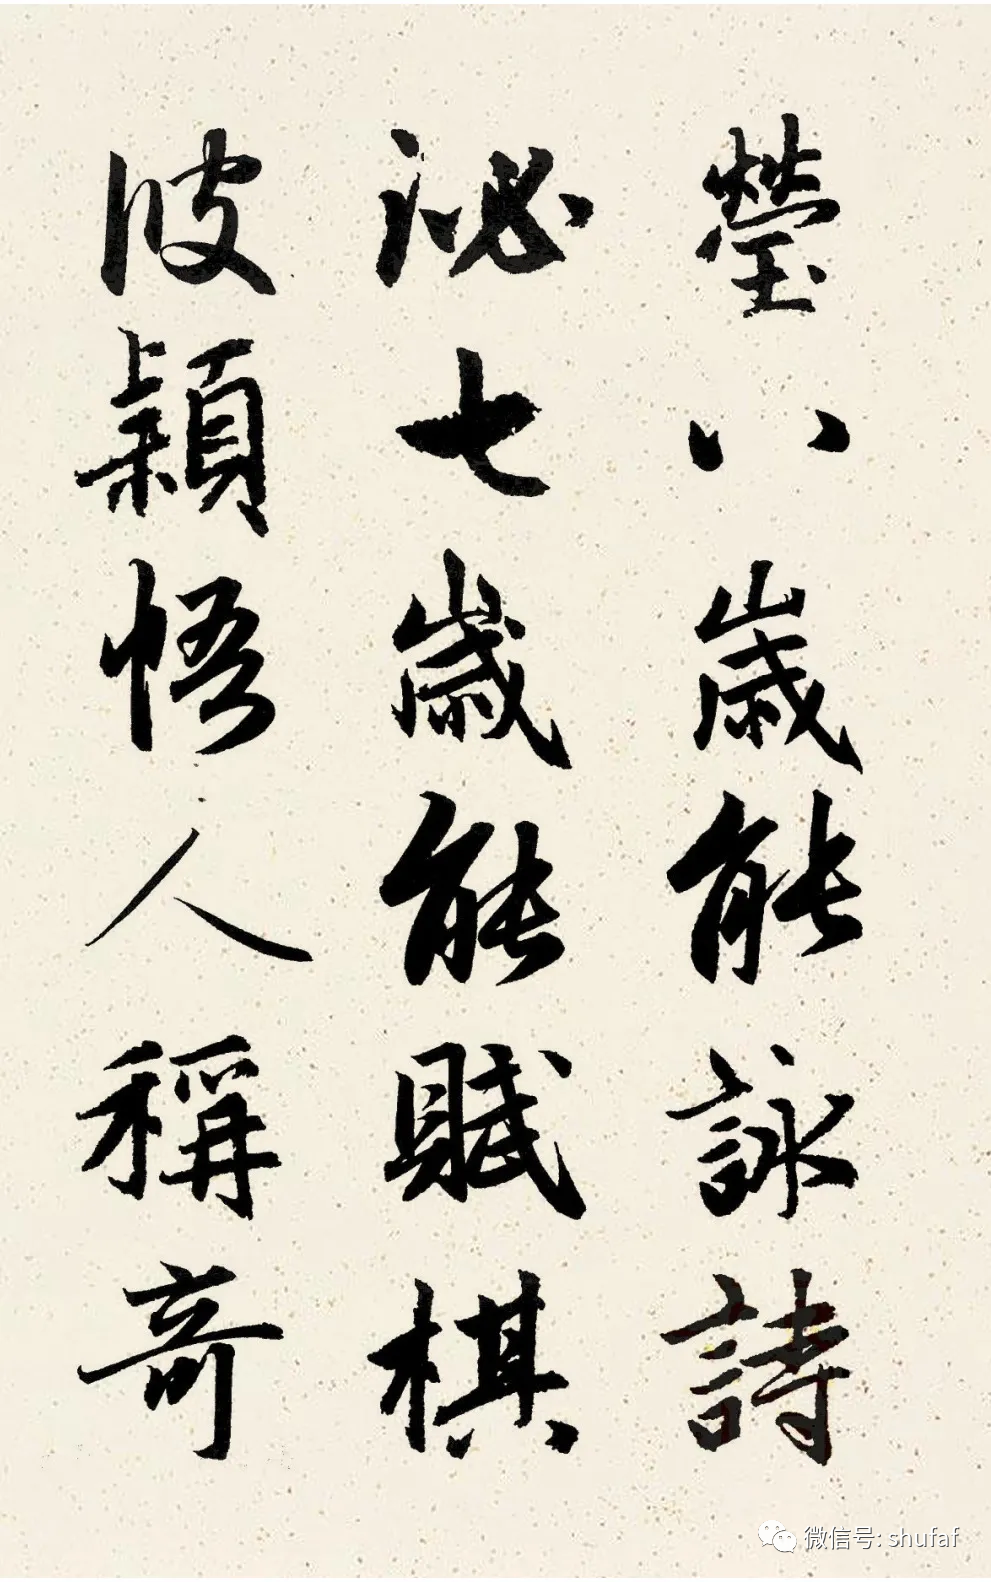 瑩八歲能詠詩
泌七歲能賦棋
彼穎悟人稱奇
微信号: shufaf